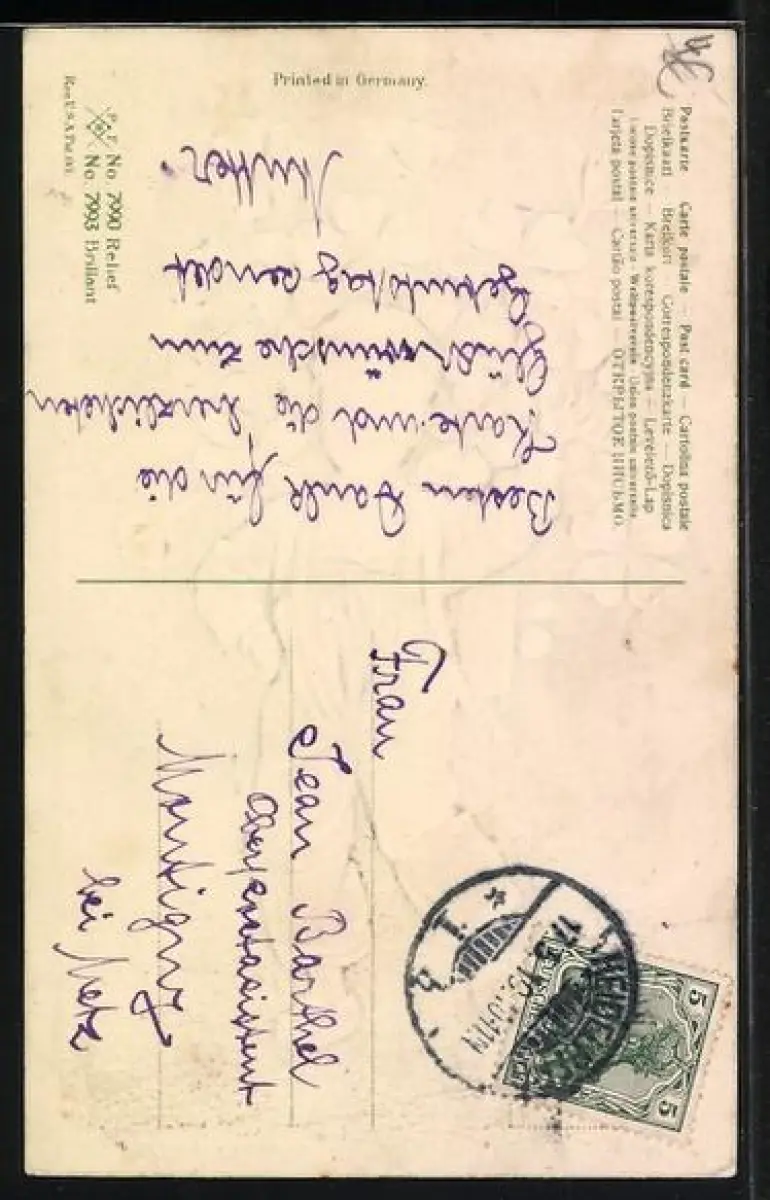 Postkarte — Carte postale — Post card — Cartolina postale
Briefkaart — Brefkort — Correspondenzkarte — Dopisnica
Dopisnice — Karta korespondencyjna — Levelező-Lap
Union postale universelle - Weltpostverein - Union postale universelle
Tarjeta postal — Cartão postal — ОТКРЫТОЕ ПИСЬМО.
Printed in Germany.
P. F.
No. 7990 Relief
No. 7993 Brillant
Besten Dank für die
Karte und die herzlichsten
Glückwünsche zum
Geburtstag sendet
Mutter.
Frau
Jean Barthel
Montigny
bei Metz
5
5
17.5.